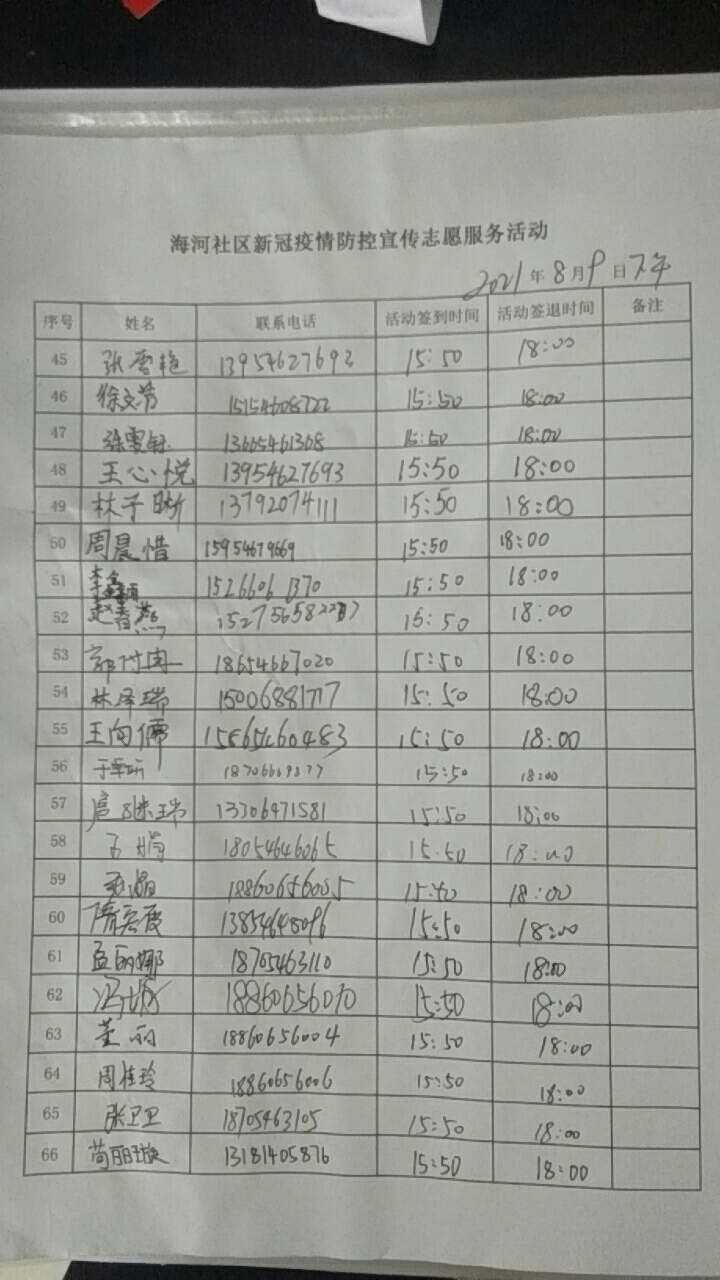 海河社区新冠疫情防控宣传志愿服务活动
2021 年 8 月 9 日 下午
序号 姓名 联系电话 活动签到时间 活动签退时间 备注
45 张雪艳 13954627693 15:50 18:00
46 徐文芳 15154608722 15:50 18:00
47 13605461368 15:50 18:00
48 王心悦 13954627693 15:50 18:00
49 林子晰 13792074111 15:50 18:00
50 周晨惜 15954679669 15:50 18:00
51 15266061370 15:50 18:00
52 赵春燕 15:50 18:00
53 18654667020 15:50 18:00
54 林泽瑞 15006881717 15:50 18:00
55 王向儒 15:50 18:00
56 15:50 18:00
57 扈继瑞 13306471581 15:50 18:00
58 18054646065 15:50 18:00
59 18860656005 18:00
60 13854648096 15:50 18:00
61 孟丽娜 18705463110 15:50 18:00
62 18860656010 15:50 18:00
63 董丽 18860656004 15:50 18:00
64 周桂玲 18860656006 15:50 18:00
65 张卫卫 18705463105 15:50 18:00
66 苟丽璇 13181405876 15:50 18:00